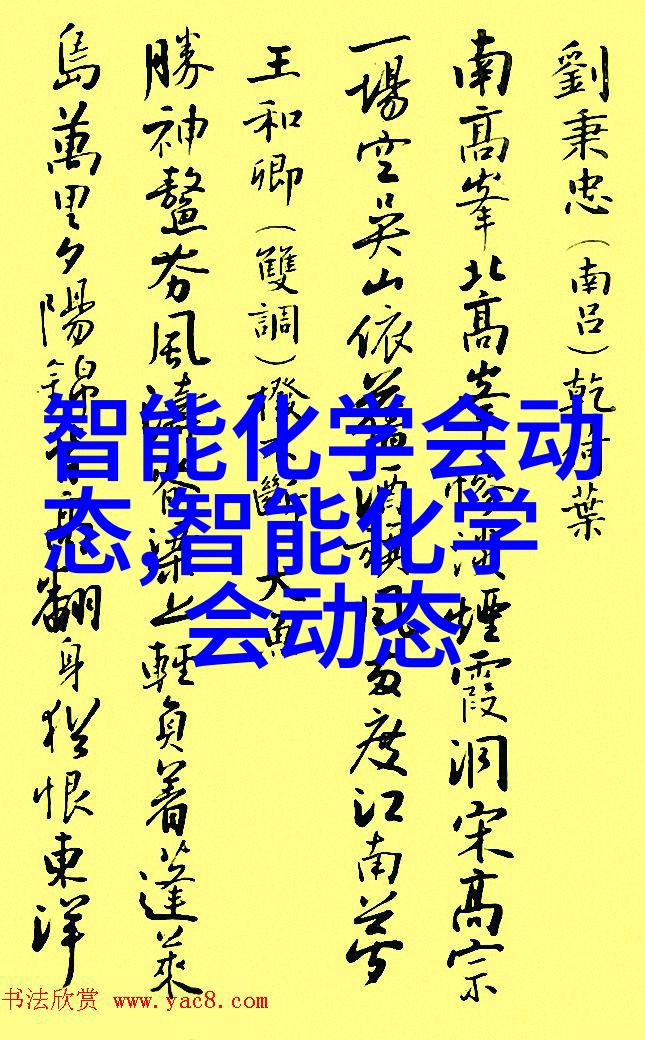 劉秉忠（南呂）乾荷葉
南高峯北高峯慘淡煙霞洞宋高宗
一場空吳山依舊酒旗風兩度江南夢
王和卿（雙調）撥不斷大魚
勝神鼇夯風濤脊梁上輕負着蓬萊
島萬里夕陽錦背高翻身猶恨東洋
智能化学会动
态,智能化学
会动态
书法欣赏 www.yac8.com